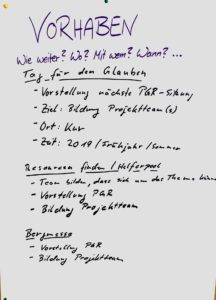 VORHABEN
Wie weiter? Wo? Mit wem? Wann? ...
Tag für den Glauben
- Vorstellung nächste PGR-Sitzung
- Ziel: Bildung Projektteam(s)
- Ort:
- Zeit: 2019 / Frühjahr / Sommer
Resourcen finden / Helferpool
- Team bilden, dass sich um das Thema
- Vorstellung PGR
- Bildung Projektteam
Bergmesse
- Vorstellung PGR
- Bildung Projektteam